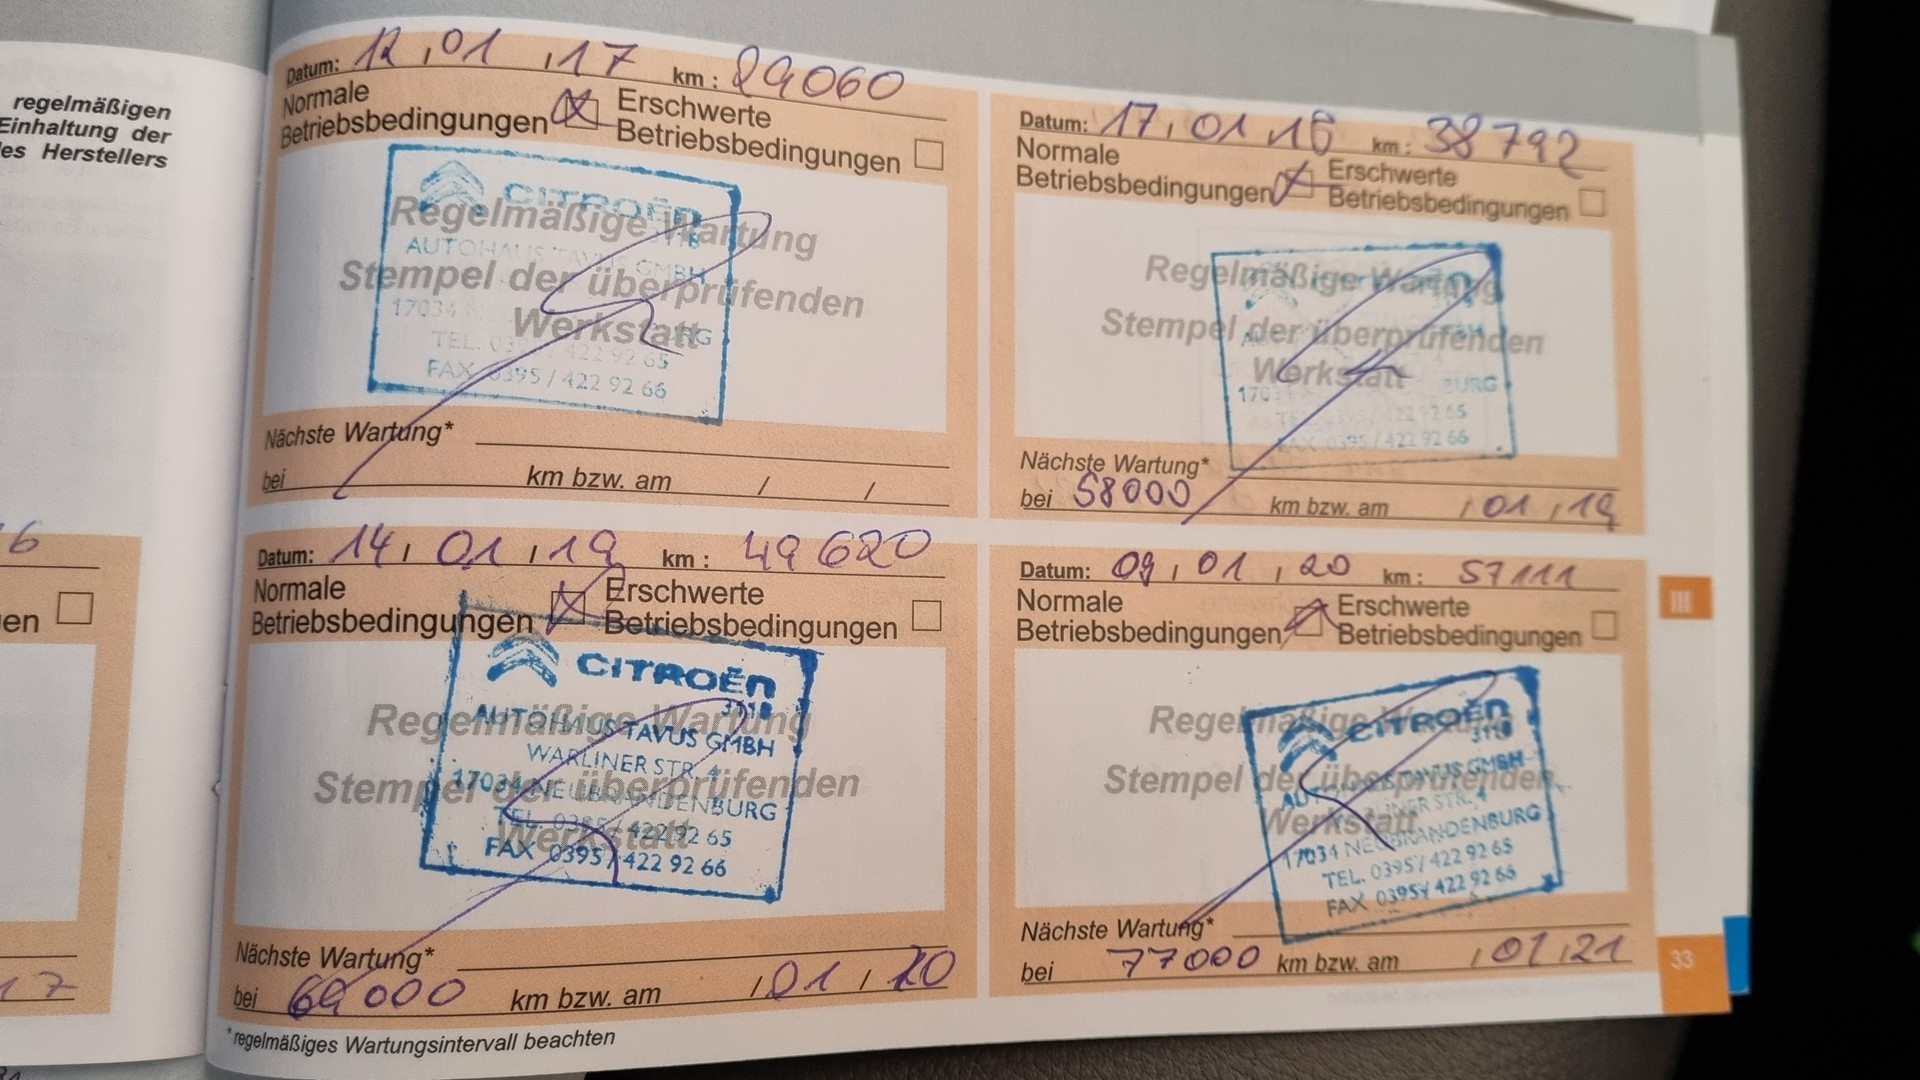 regelmäßigen
Einhaltung der
des Herstellers
6
en
17
Datum: 12, 01, 17 km: 29060
Normale
Betriebsbedingungen
Erschwerte
Betriebsbedingungen
CITROËN
3118
Regelmäßige Wartung
AUTOHAUS TAVUS GMBH
Stempel der überprüfenden
17034
Werkstatt
TEL. 0395 / 422 92 65
FAX 0395 / 422 92 66
Nächste Wartung*
bei km bzw. am / /
Datum: 17, 01, km: 38792
Normale
Betriebsbedingungen
Erschwerte
Betriebsbedingungen
Regelmäßige Wartung
Stempel der überprüfenden
Werkstatt
BURG
422 92 65
FAX 0395 / 422 92 66
Nächste Wartung*
bei 58000 km bzw. am , 01, 19
Datum: 14, 01, 19 km: 49620
Normale
Betriebsbedingungen
Erschwerte
Betriebsbedingungen
CITROËN
3118
Regelmäßige Wartung
AUTOHAUS TAVUS GMBH
WARLINER STR. 4
17034 NEUBRANDENBURG
Stempel der überprüfenden
TEL. 0395 / 422 92 65
Werkstatt
FAX 0395 / 422 92 66
Nächste Wartung*
bei 69000 km bzw. am , 01, 20
Datum: 09, 01, 20 km: 57111
Normale
Betriebsbedingungen
Erschwerte
Betriebsbedingungen
CITROËN
3118
Regelmäßige Wartung
AUTOHAUS TAVUS GMBH
Stempel der überprüfenden
WARLINER STR. 4
Werkstatt
17034 NEUBRANDENBURG
TEL. 0395 / 422 92 65
FAX 0395 / 422 92 66
Nächste Wartung*
bei 77000 km bzw. am , 01, 21
* regelmäßiges Wartungsintervall beachten
III
33